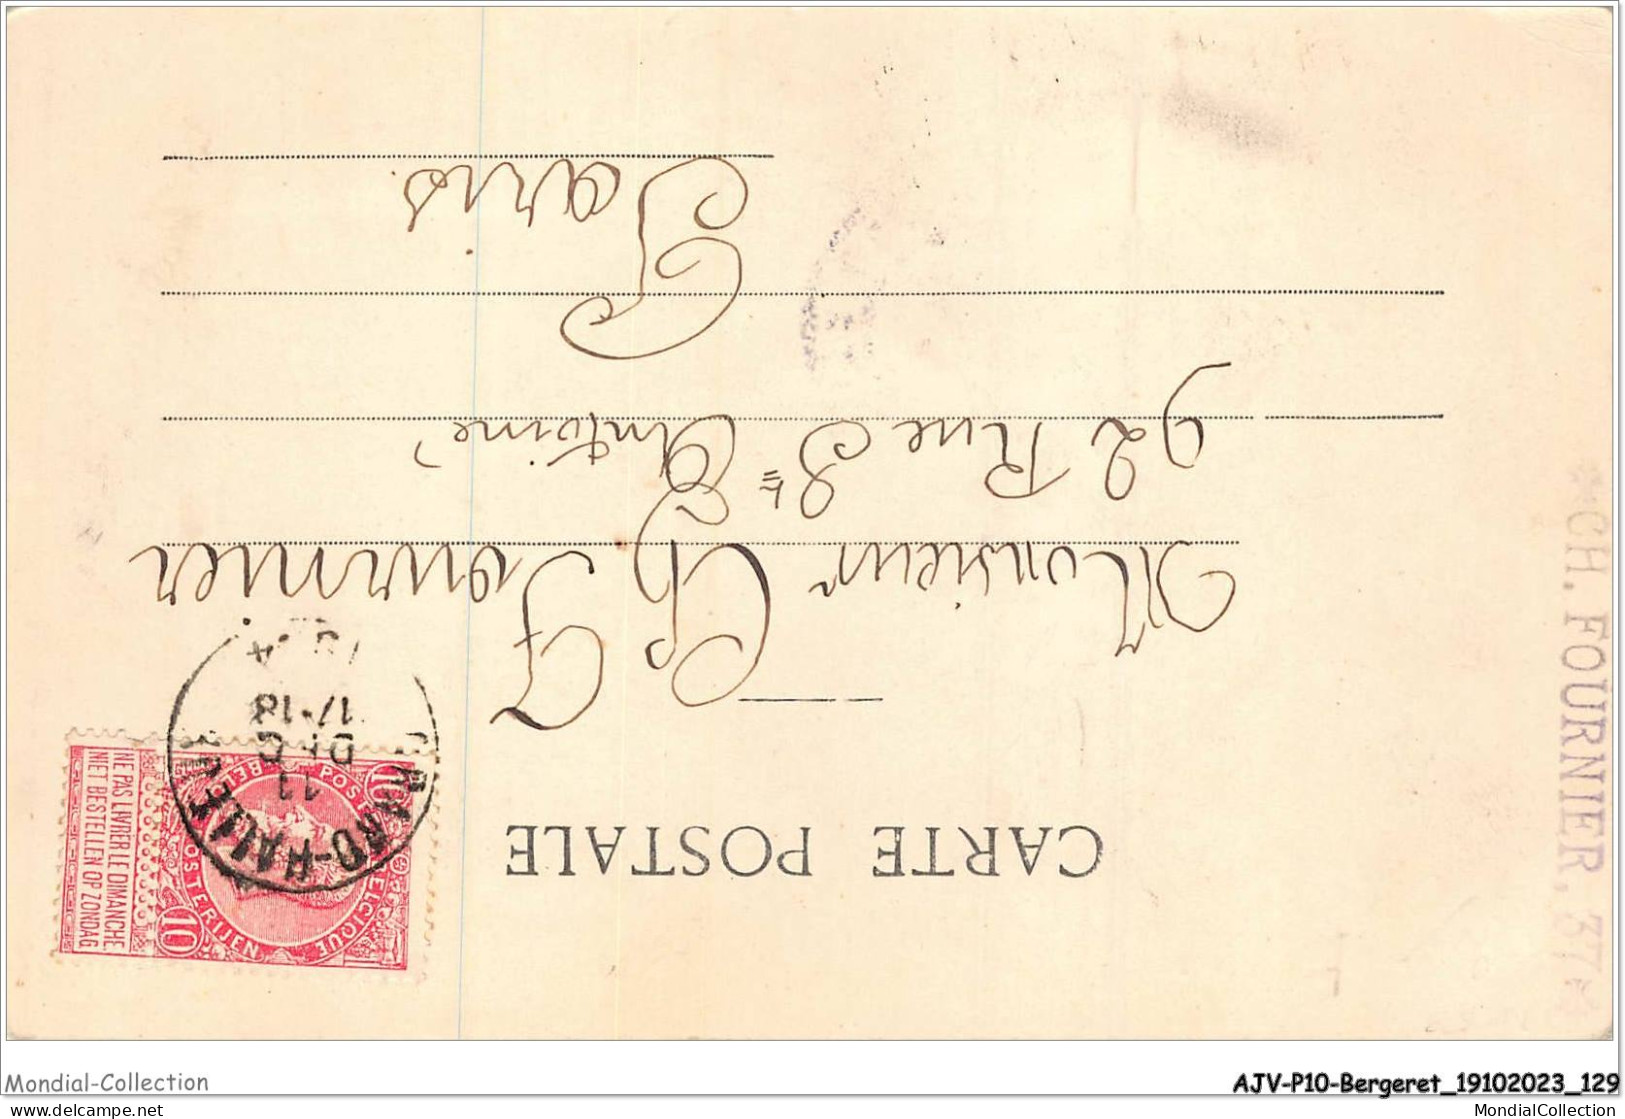 CARTE POSTALE
Monsieur Ch Fournier
92 Rue St Antoine
Paris.
CH. FOURNIER, 37
10
10
POSTERIJEN
BELGIQUE
NIET BESTELLEN OP ZONDAG
NE PAS LIVRER LE DIMANCHE
11
DEC
17-18
Mondial-Collection
AJV-P10-Bergeret_19102023_129
www.delcampe.net
MondialCollection